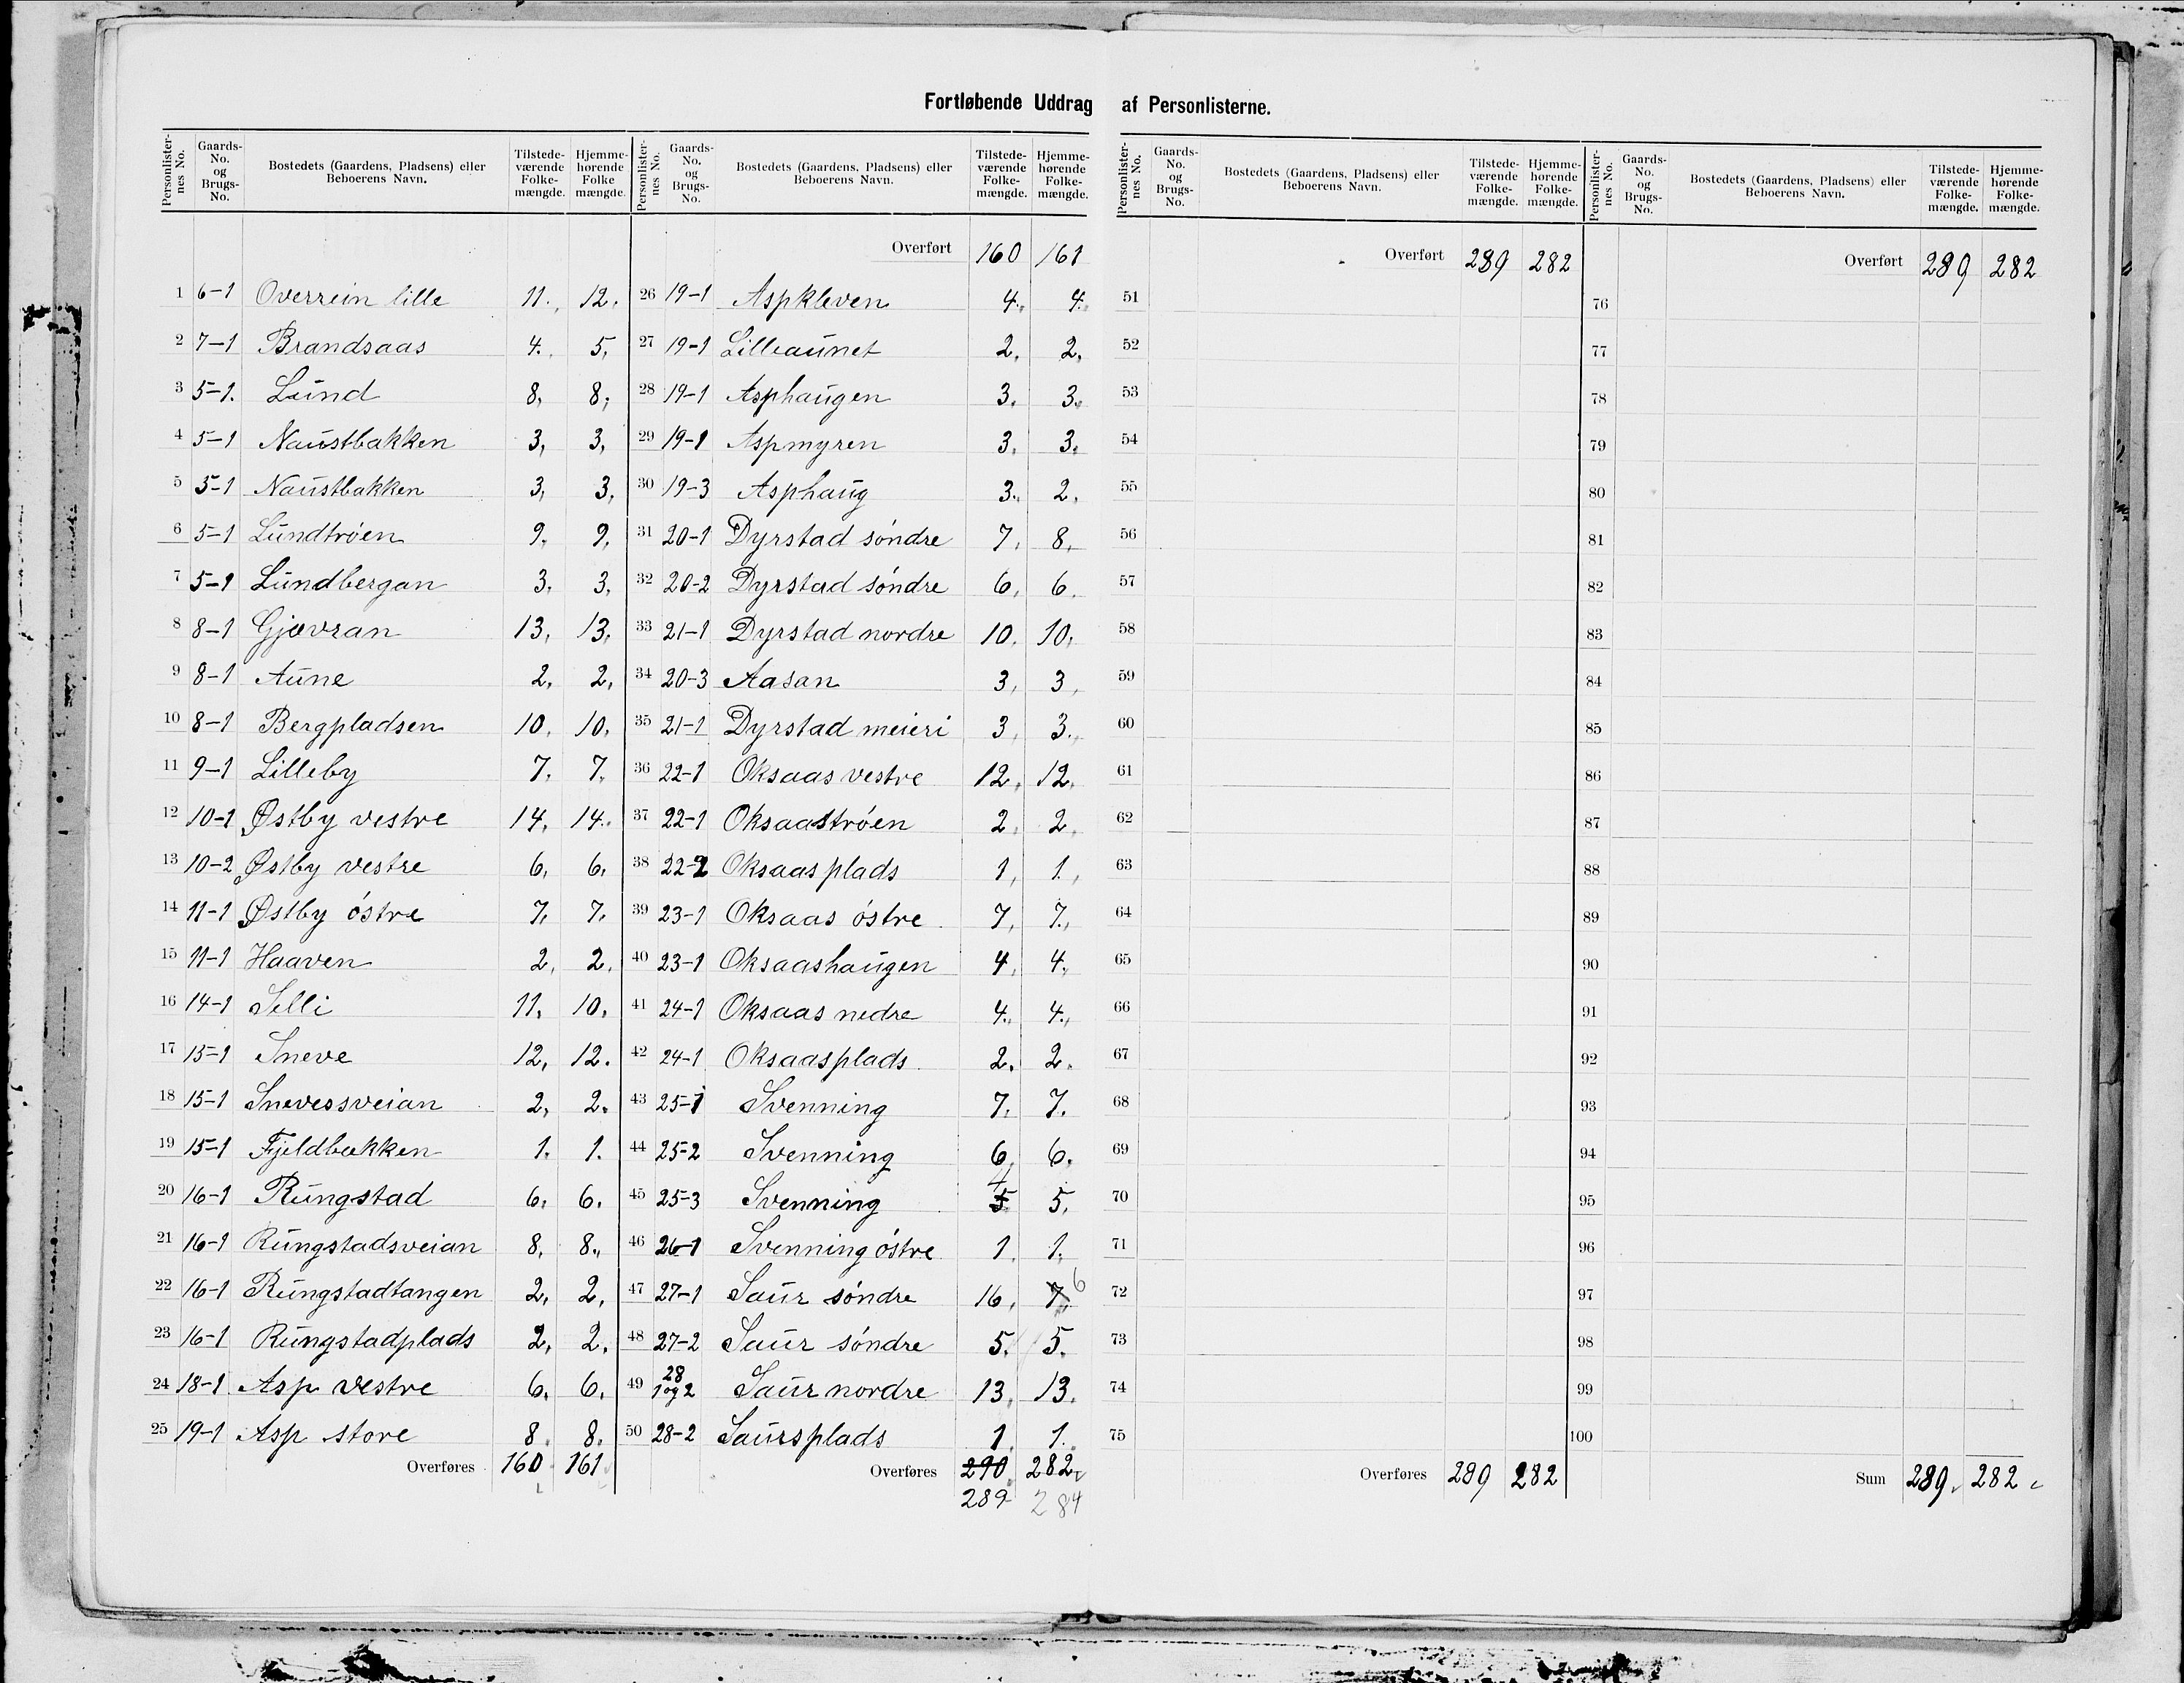 Fortløbende Uddrag af Personlisterne.
Personlister-nes No. Gaards-No. og Brugs-No. Bostedets (Gaardens, Pladsens) eller Beboerens Navn. Tilstede-værende Folke-mængde. Hjemme-hørende Folke mængde.
1 6-1 Overrein lille 11. 12.
2 7-1 Brandsaas 4. 5.
3 5-1. Lund 8, 8,
4 5-1 Naustbakken 3, 3,
5 5-1 Naustbakken 3, 3,
6 5-1 Lundtrøen 9. 9.
7 5-1 Lundbergan 3. 3.
8 8-1 Gjævran 13. 13.
9 8-1 Aune 2. 2,
10 8-1 Bergpladsen 10. 10.
11 9-1 Lilleby 7. 7.
12 10-1 Østby vestre 14. 14.
13 10-2 Østby vestre 6. 6.
14 11-1 Østby østre 7. 7.
15 11-1 Haaven 2. 2.
16 14-1 Selli 11. 10.
17 15-1 Sneve 12. 12.
18 15-1 Snevesveian 2, 2.
19 15-1 Fjeldbækken 1. 1.
20 16-1 Rungstad 6. 6.
21 16-1 Rungstadsveian 8. 8.
22 16-1 Rungstadtangen 2, 2,
23 16-1 Rungstadplads 2, 2.
24 18-1 Asp vestre 6. 6.
25 19-1 Asp store 8. 8.
Overføres 160 161
Personlister-nes No. Gaards-No. og Brugs-No. Bostedets (Gaardens, Pladsens) eller Beboerens Navn. Tilstede-værende Folke-mængde. Hjemme-hørende Folke-mængde.
Overført 160 161
26 19-1 Aspkleven 4. 4.
27 19-1 Lilleaunet 2. 2.
28 19-1 Asphaugen 3. 3.
29 19-1 Aspmyren 3. 3.
30 19-3 Asphaug 3. 2.
31 20-1 Dyrstad søndre 7. 8.
32 20-2 Dyrstad søndre 6. 6.
33 21-1 Dyrstad nordre 10. 10.
34 20-3 Aasan 3, 3,
35 21-1 Dyrstad meieri 3, 3.
36 22-1 Oksaas vestre 12. 12.
37 22-1 Oksaastrøen 2. 2.
38 22-2 Oksaasplads 1, 1.
39 23-1 Oksaas østre 7. 7.
40 23-1 Oksaashaugen 4, 4.
41 24-1 Oksaas nedre 4. 4.
42 24-1 Oksaasplads 2. 2.
43 25-1 Svenning 7. 7.
44 25-2 Svenning 6. 6.
45 25-3 Svenning 5 4 5.
46 26-1 Svenning østre 1. 1.
47 27-1 Saur søndre 16. 7. 6
48 27-2 Saur søndre 5. 5.
49 28 1 og 2 Saur nordre 13. 13.
50 28-2 Saursplads 1. 1.
Overføres 290 282
289 284
Personlister-nes No. Gaards-No. og Brugs-No. Bostedets (Gaardens, Pladsens) eller Beboerens Navn. Tilstede-værende Folke-mængde. Hjemme-hørende Folke-mængde.
Overført 289 282
51
52
53
54
55
56
57
58
59
60
61
62
63
64
65
66
67
68
69
70
71
72
73
74
75
Overføres 289 282
Personlister-nes No. Gaards-No. og Brugs-No. Bostedets (Gaardens, Pladsens) eller Beboerens Navn. Tilstede-værende Folke-mængde. Hjemme-hørende Folke-mængde.
Overført 289 282
76
77
78
79
80
81
82
83
84
85
86
87
88
89
90
91
92
93
94
95
96
97
98
99
100
Sum 289. 282